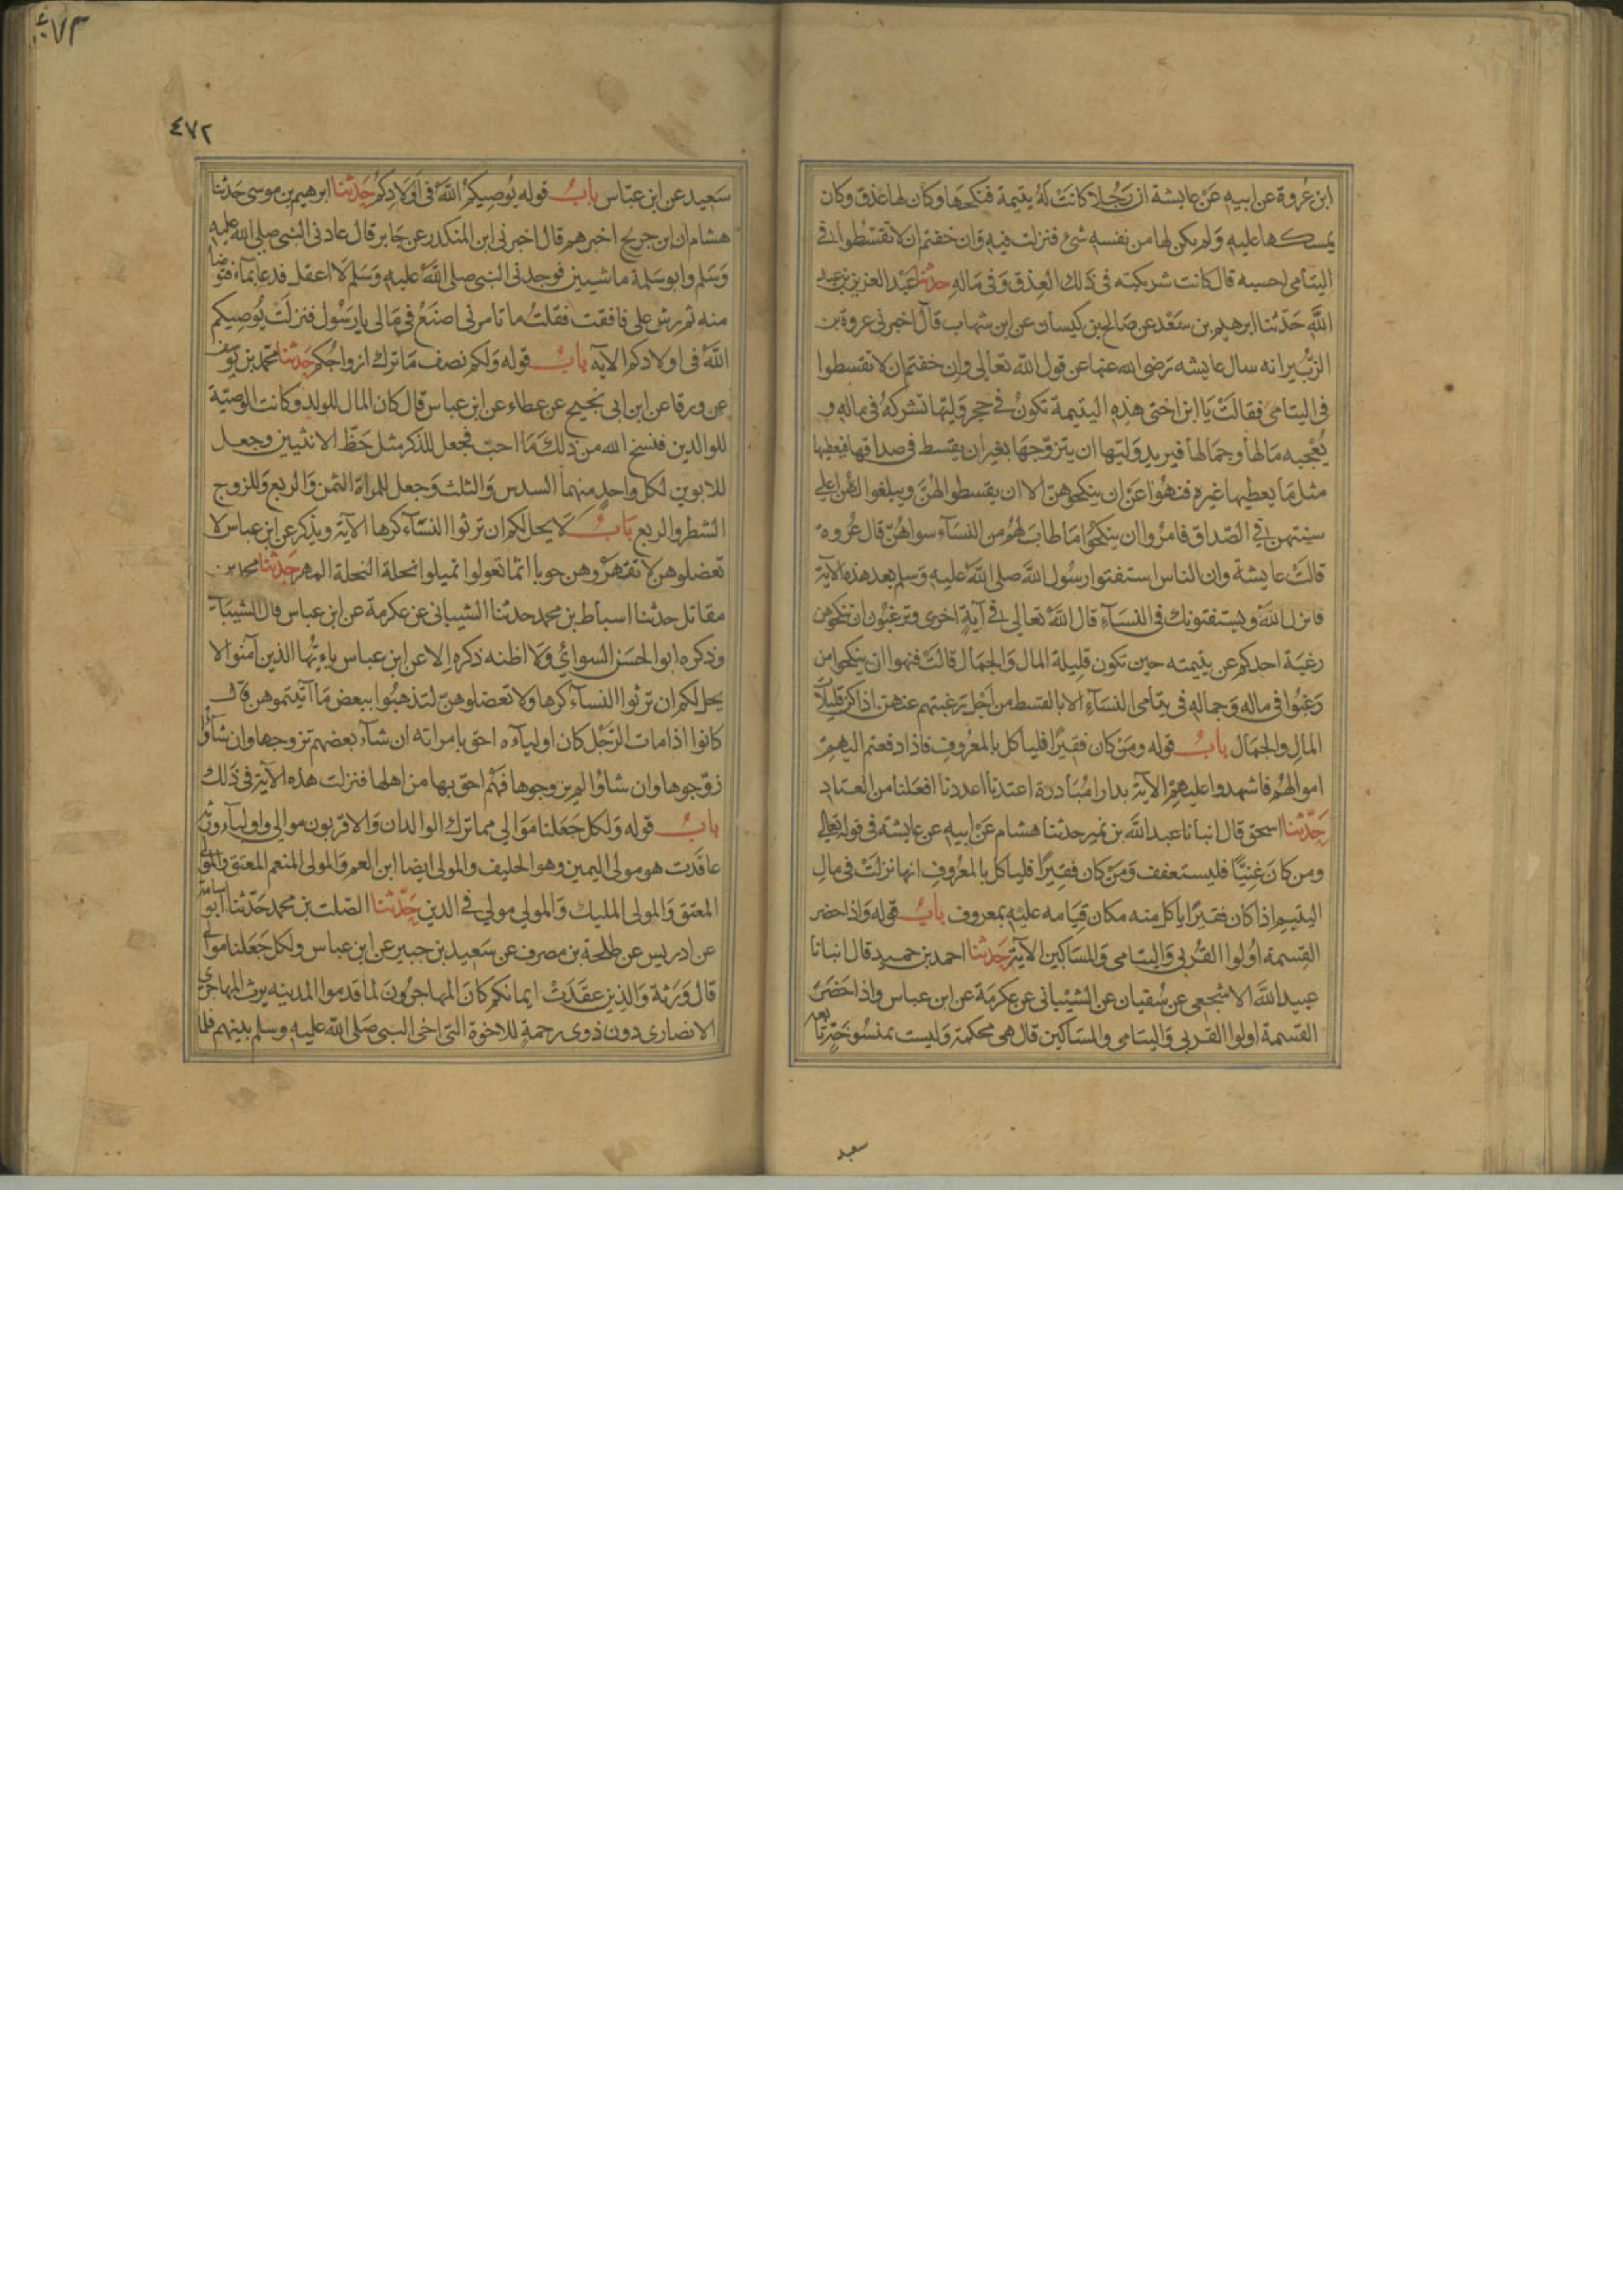 ابن عروة عن ابيه عن عايشة ان رجلا كانت له يتيمة فنكحها وكان لها عذق وكان
يمسكها عليه ولم يكن لها من نفسه شئ فنزلت فيه وان خفتم ان لا تقسطوا في
اليتامى احسبه قال كانت شريكته في ذلك العذق وفي ماله حدثنا عبد العزيز بن عبد
الله حدثنا ابرهيم بن سعد عن صالح بن كيسان عن ابن شهاب قال اخبرني عروة بن
الزبير انه سال عايشه رضى الله عنها عن قول الله تعالى وان خفتم ان لا تقسطوا
فى اليتامى فقالت يا ابن اختى هذه اليتيمة تكون في حجر وليها تشركه في ماله و
يعجبه مالها وجمالها فيريد وليها ان يتزوجها بغير ان يقسط فى صداقها فيعطيها
مثل ما يعطيها غيره فنهوا عن ان ينكحوهن الا ان يقسطوا لهن ويبلغوا لهن اعلى
سنتهن في الصداق فامروا ان ينكحوا ما طاب لهم من النسآء سواهن قال عروه
قالت عايشة وان الناس استفتوا رسول الله صلى الله عليه وسلم بعد هذه الآية
فانزل الله ويستفتونك فى النسآء قال الله تعالى في آية اخرى وترغبون ان تنكحوهن
رغبة احدكم عن يتيمته حين تكون قليلة المال والجمال قالت فنهوا ان ينكحوا من
رغبوا فى ماله وجماله فى يتامى النسآء الا بالقسط من اجل رغبتهم عنهن اذا كن قليلات
المال والجمال باب قوله ومن كان فقيرا فلياكل بالمعروف فاذا دفعتم اليهم
اموالهم فاشهدوا عليهم الآية بدارا مبادرة اعتدنا اعددنا افعلنا من العتاد
حدثنا اسحق قال انبانا عبد الله بن نمير حدثنا هشام عن ابيه عن عايشة فى قوله تعالى
ومن كان غنيا فليستعفف ومن كان فقيرا فلياكل بالمعروف انها نزلت فى مال
اليتيم اذا كان فقيرا ياكل منه مكان قيامه عليه بمعروف باب قوله واذا حضر
القسمة اولوا القربى واليتامى والمساكين الآية حدثنا احمد بن حميد قال انبانا
عبيد الله الاشجعى عن سفيان عن الشيبانى عن عكرمة عن ابن عباس واذا حضر
القسمة اولوا القربى واليتامى والمساكين قال هى محكمة وليست بمنسوخة تابعه
سعيد
٤٧٣
٤٧٢
سعيد عن ابن عباس باب قوله يوصيكم الله فى اولادكم حدثنا ابرهيم بن موسى حدثنا
هشام ان ابن جريج اخبرهم قال اخبرنى ابن المنكدر عن جابر قال عادنى النبى صلى الله عليه
وسلم وابو سلمة ماشيين فوجدنى النبى صلى الله عليه وسلم لا اعقل فدعا بمآء فتوضا
منه ثم رش على فافقت فقلت ما تامرنى اصنع فى مالى يا رسول فنزلت يوصيكم
الله فى اولادكم الآيه باب قوله ولكم نصف ما ترك ازواجكم حدثنا محمد بن يوسف
عن ورقا عن ابن ابى نجيح عن عطاء عن ابن عباس قال كان المال للولد وكانت الوصية
للوالدين فنسخ الله من ذلك ما احب فجعل للذكر مثل حظ الانثيين وجعل
للابوين لكل واحد منهما السدس والثلث وجعل للمراة الثمن والربع وللزوج
الشطر والربع باب لا يحل لكم ان ترثوا النسآء كرها الآية ويذكر عن ابن عباس لا
تعضلوهن لا تقهروهن حوبا اثما تعولوا تميلوا نحلة النحلة المهر حدثنا محمد بن
مقاتل حدثنا اسباط بن محمد حدثنا الشيبانى عن عكرمة عن ابن عباس قال الشيبانى
وذكره ابو الحسن السوائي ولا اظنه ذكره الا عن ابن عباس ياءيها الذين آمنوا لا
يحل لكم ان ترثوا النسآء كرها ولا تعضلوهن لتذهبوا ببعض ما آتيتموهن قال
كانوا اذا مات الرجل كان اوليآءه احق بامراته ان شآء بعضهم تزوجها وان شآؤا
زوجوها وان شاؤا لم يزوجوها فهم احق بها من اهلها فنزلت هذه الآية فى ذلك
باب قوله ولكل جعلنا موالى مما ترك الوالدان والاقربون موالى واوليآء ورثة
عاقدت هو مولى اليمين وهو الحليف والمولى ايضا ابن العم والمولى المنعم المعتق والمولى
المعتق والمولى المليك والمولى مولى فى الدين حدثنا الصلت بن محمد حدثنا ابو اسامة
عن ادريس عن طلحة بن مصرف عن سعيد بن جبير عن ابن عباس ولكل جعلنا موالى
قال ورثة والذين عقدت ايمانكم كان المهاجرون لما قدموا المدينه يرث المهاجرى
الانصارى دون ذوى رحمة للاخوة التى اخى النبى صلى الله عليه وسلم بينهم فلما